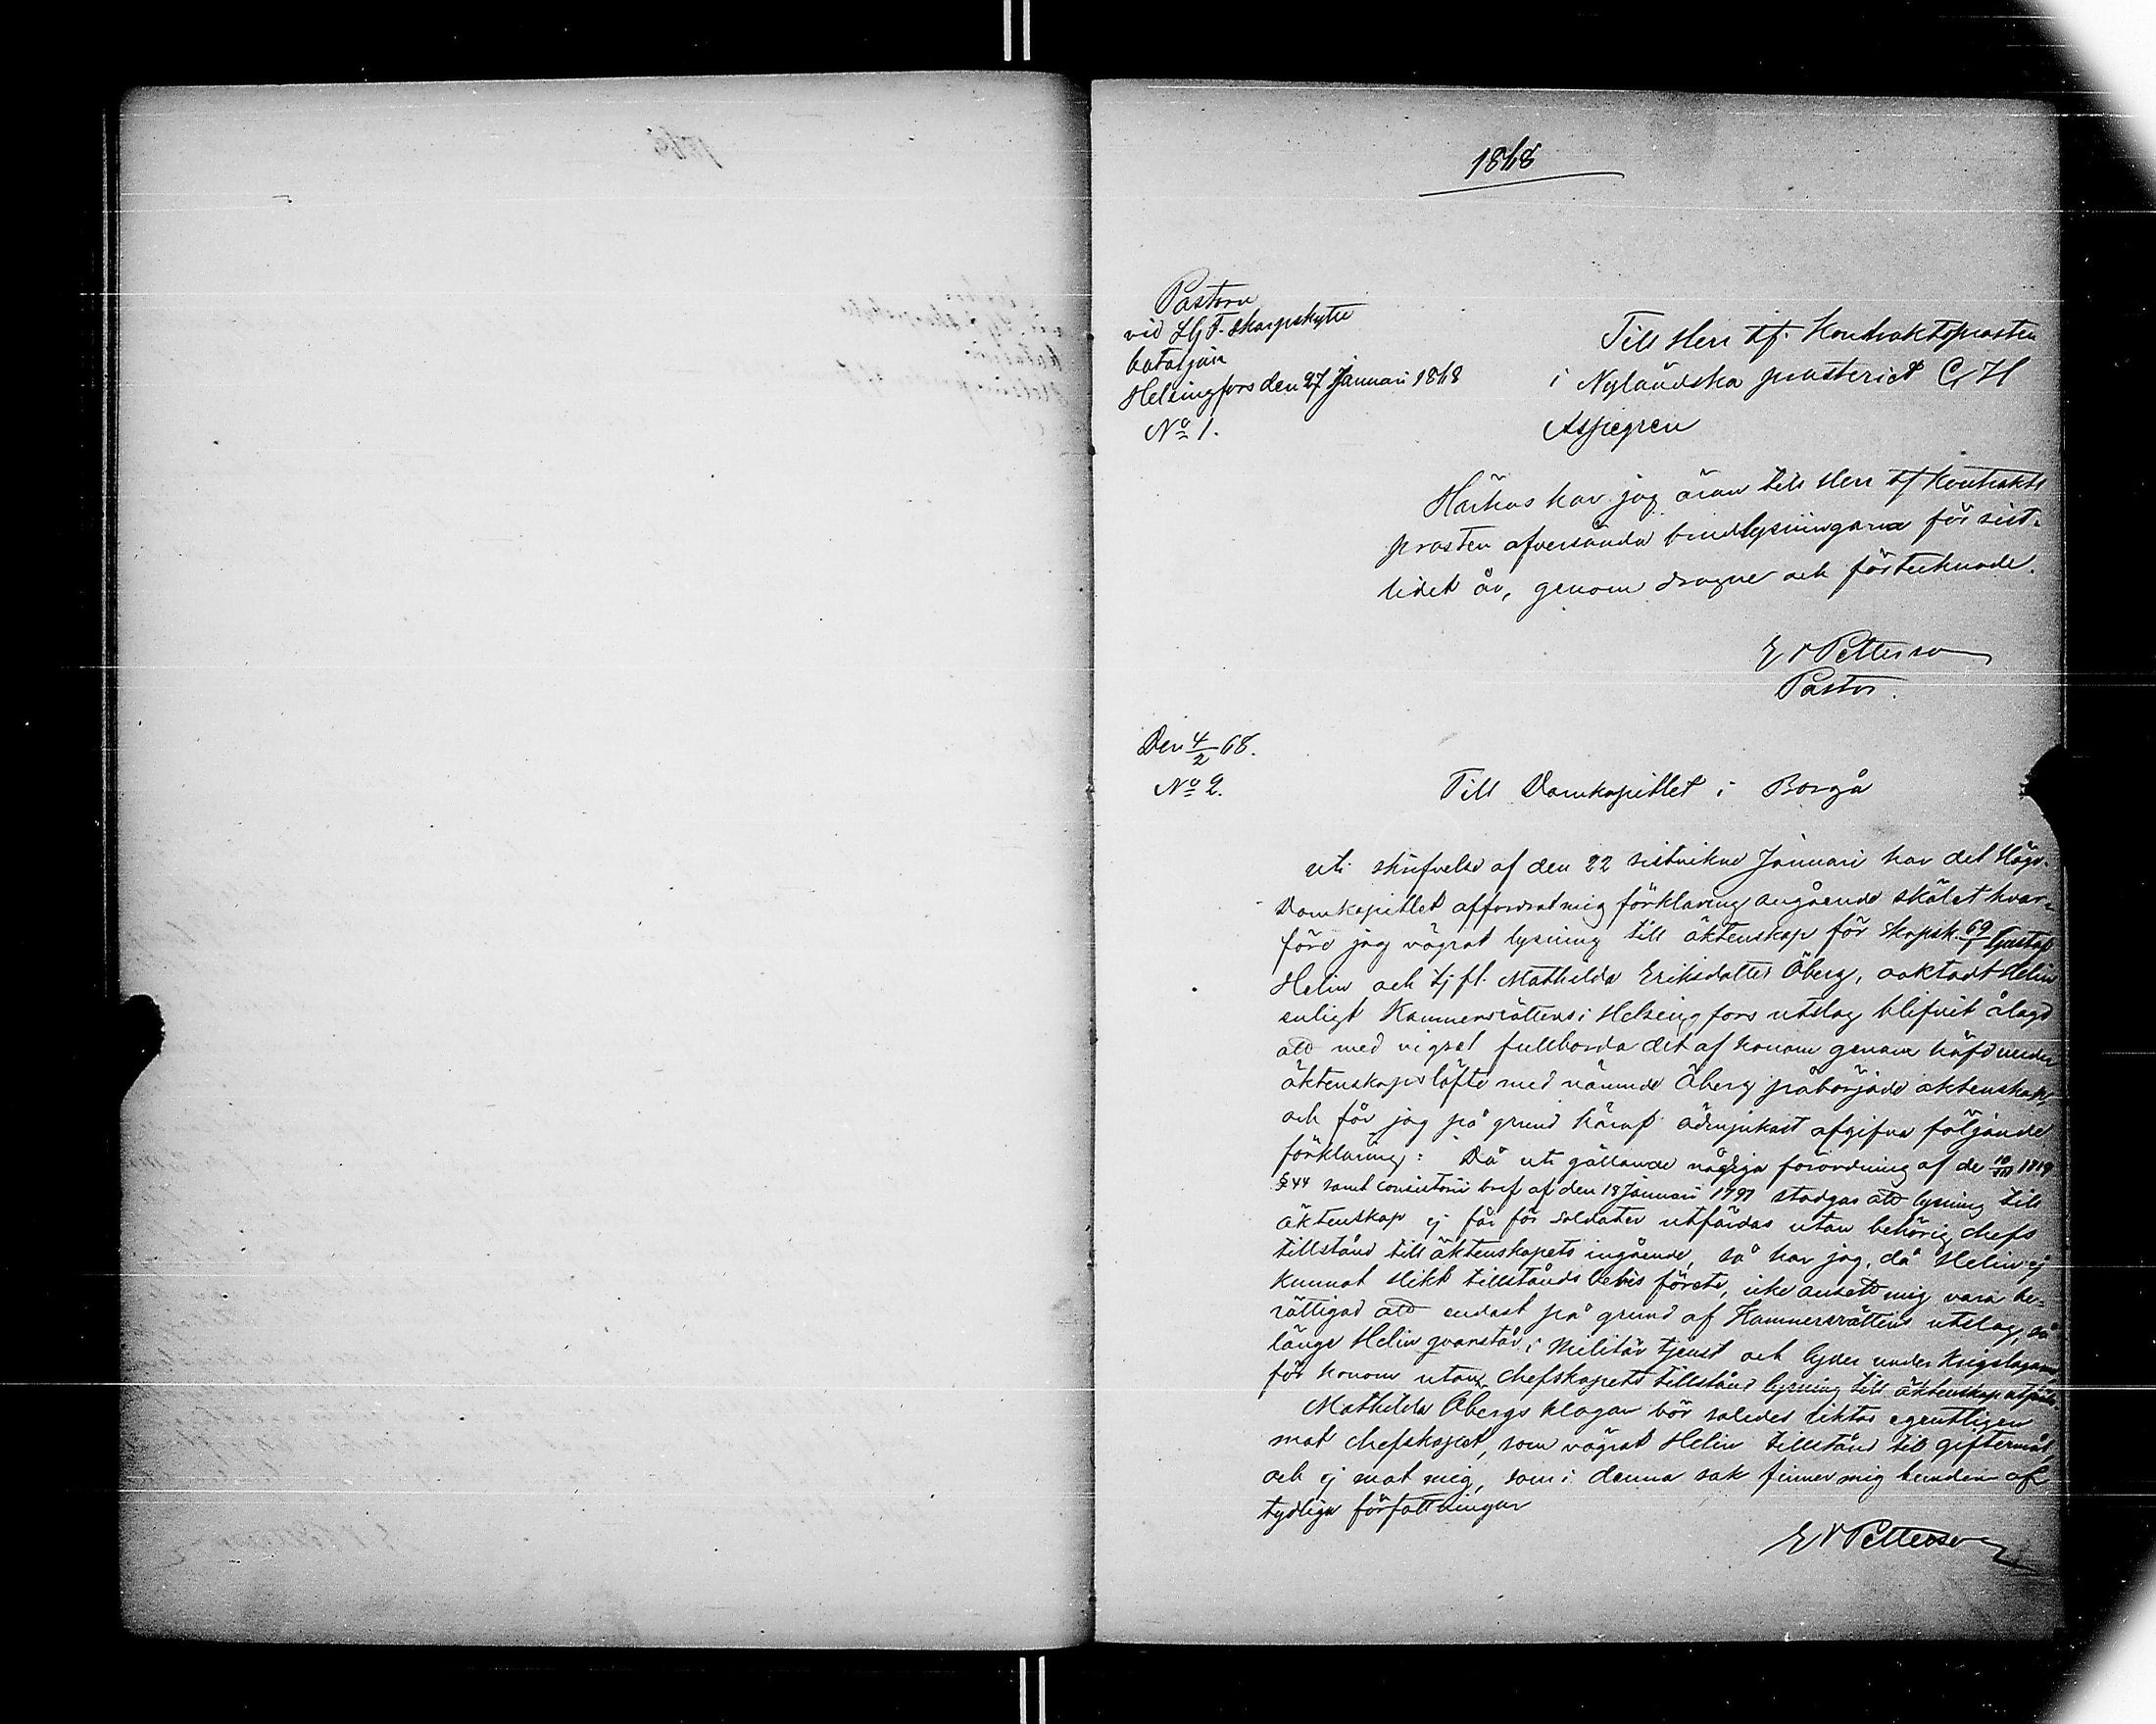 1868
Pastorn
vid LG F. skarpskytte
bataljon
Helsingfors den 27 Januari 1868
No 1.
Till Herr tf. Kontraktsprosten
i Nyländska prosteriet C H
Aspegren
Härhos har jag äran till Herr tf Kontrakts
prosten öfversända brudlysningarna för sist-
lidet år, genom dragne och förtecknade.
E V Petterson
Pastor.
Den 4/2 68.
No 2.
Till Domkapitlet i Borgå
uti skrifvelse af den 22 sistvikne Januari har det Högv.
Domkapitlet affordrat mig förklaring angående skälet hvar-
före jag vägrat lysning till äktenskap för skapsk. 69 Gustaf
Helin och tj fl. Mathilda Eriksdotter Öberg, oaktadt Helin
enligt Kämnersrättens i Helsingfors utslag blifvit ålagd
att med vigsel fullborda det af honom genom häfd under
äktenskapslöfte med nämnde Öberg påbörjade äktenskap,
och får jag på grund häraf ödmjukast afgifva följande
förklaring: Då uti gällande nådiga förordning af de 1819
§ 44 samt Consistorii bref af den 18 Januari 1797 stadgas att lysning till
äktenskap ej får för soldater utfärdas utan behörig chefs
tillstånd till äktenskapets ingående, så har jag, då Helin ej
kunnat slikt tillstånds bevis förete, icke ansett mig vara be-
rättigad att endast på grund af Kämnersrättens utslag, så
länge Helin qvarstår i Militär tjenst och lyder under Krigslagarne
för honom utan chefskapets tillstånd lysning till äktenskap utfärda.
Mathilda Öbergs klagan bör således riktas egentligen
mot chefskapet, som vägrat Helin tillstånd till giftermål
och ej mot mig, som i denna sak finner mig bunden af
tydliga författningar
E V Petterson